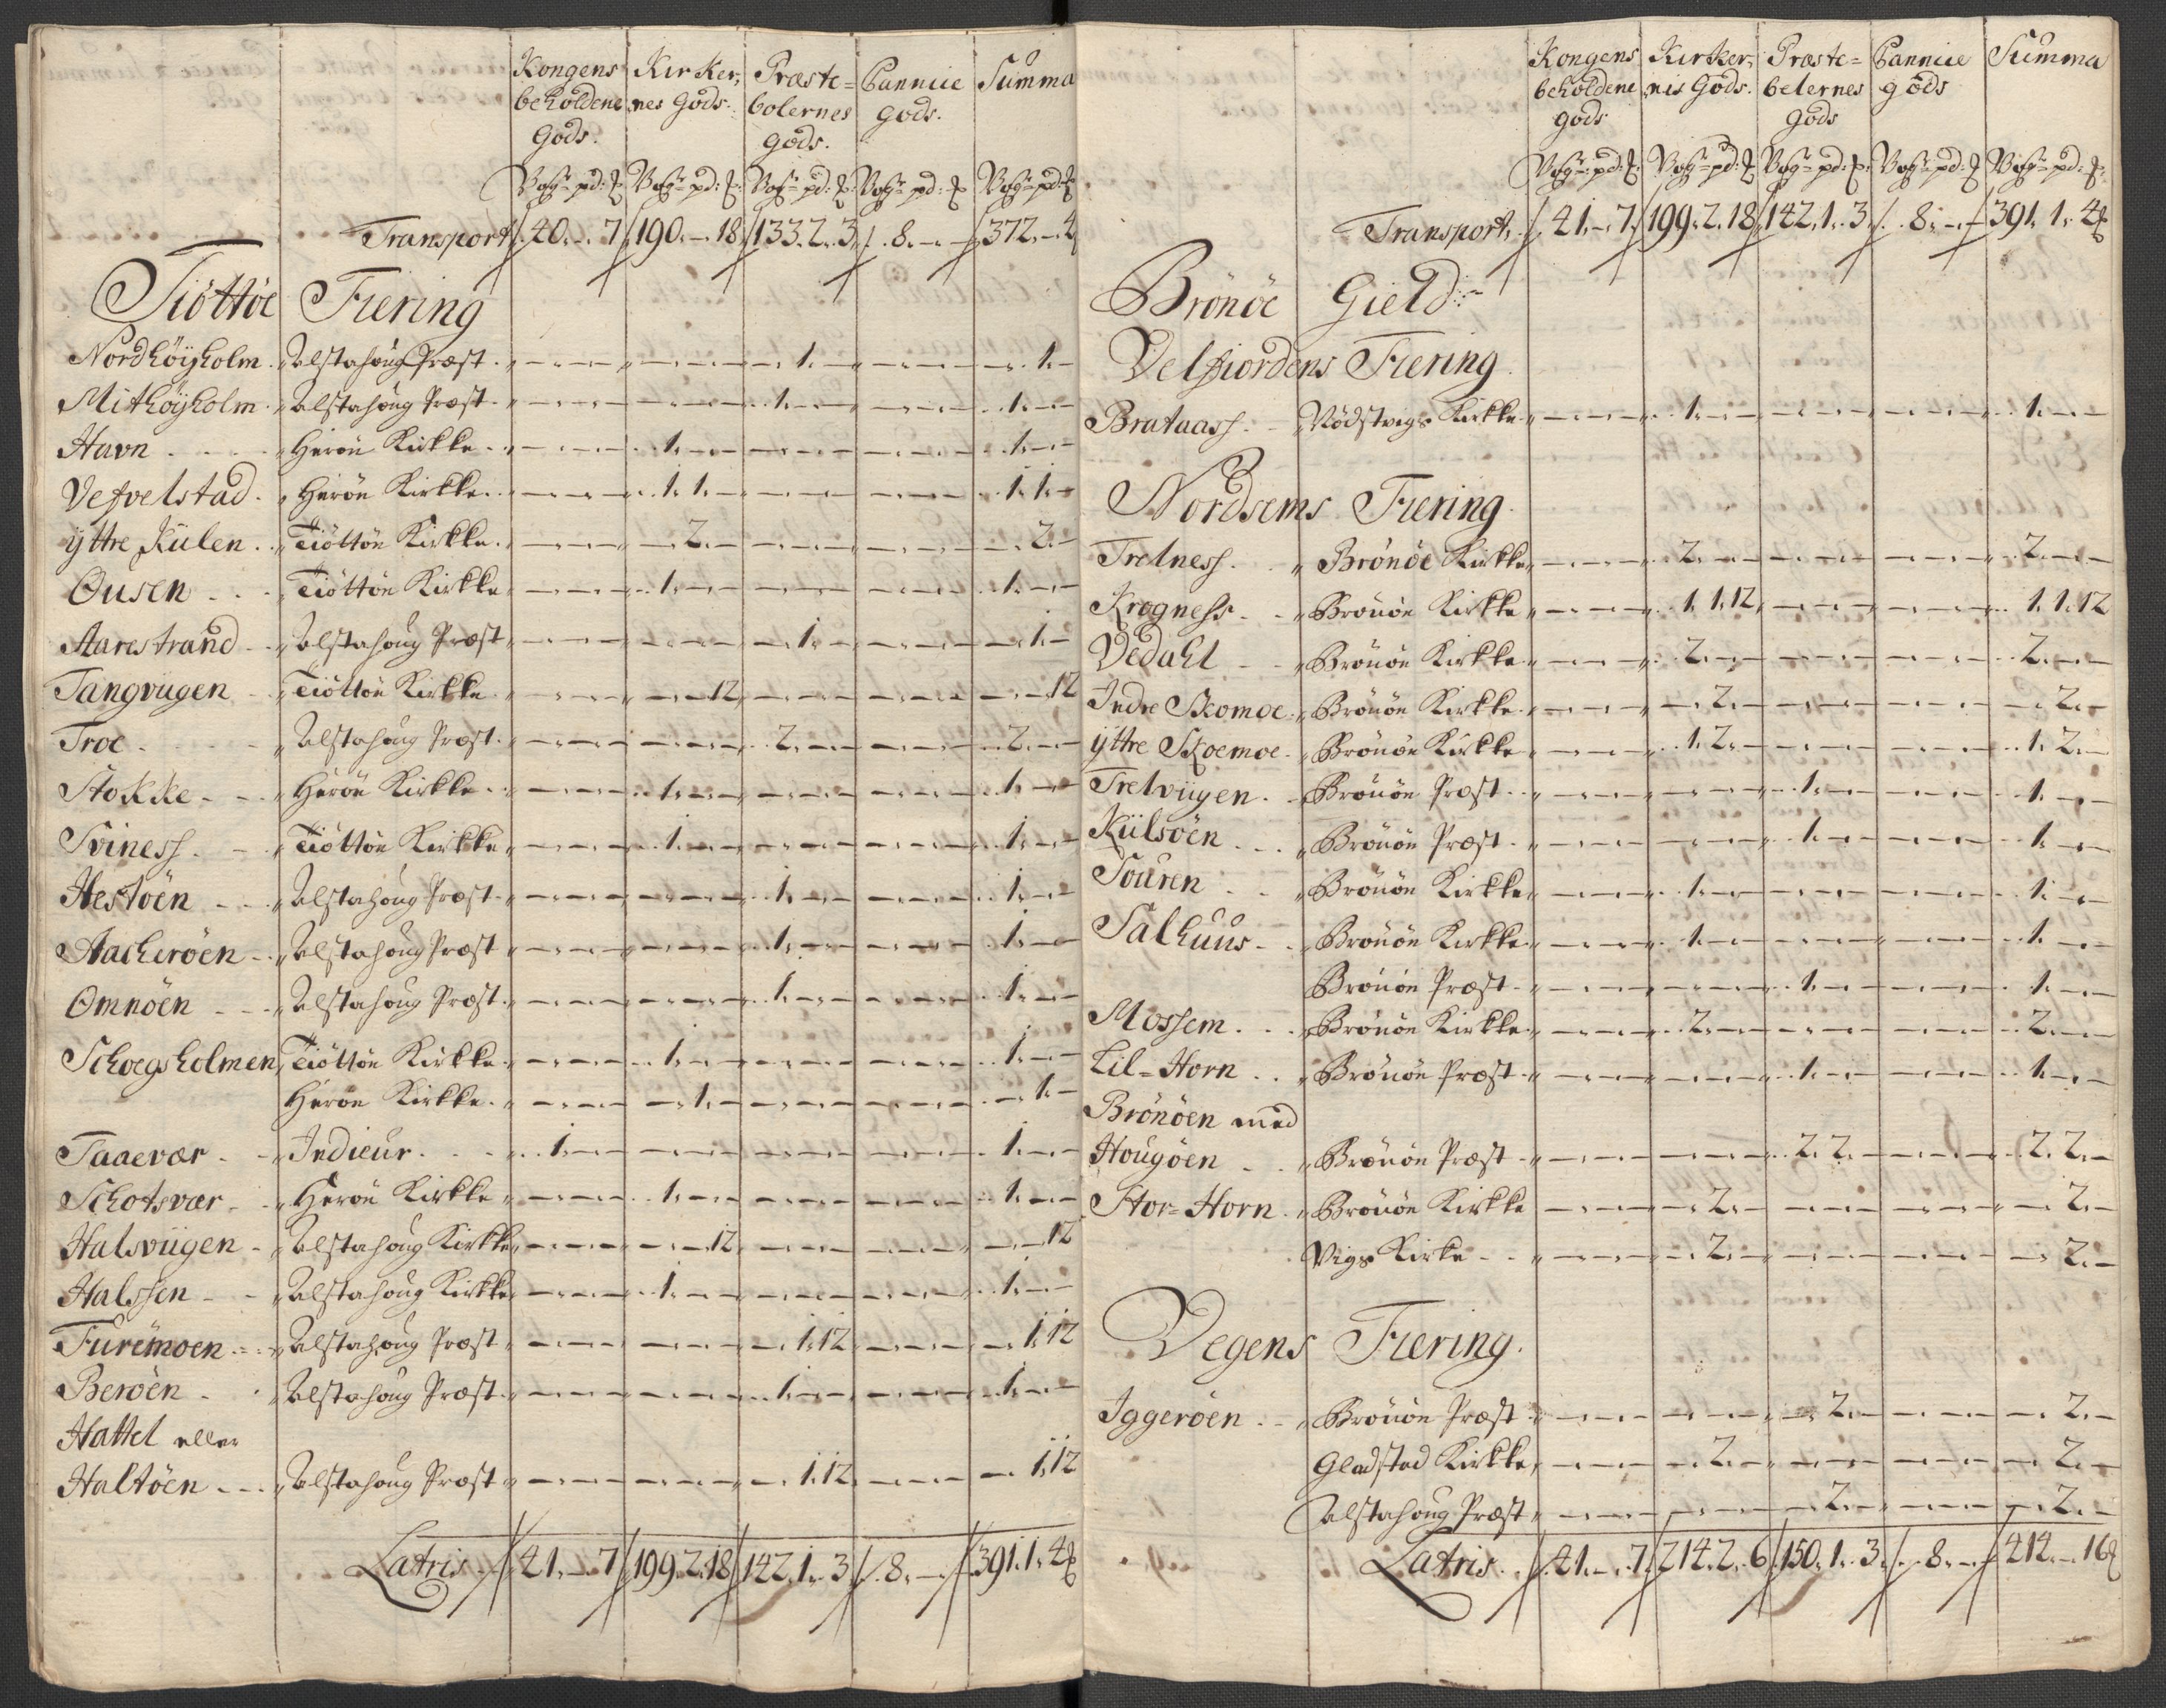 Kongens Kirker, Præste= Cannice Summa
beholdene nes Gods. bolernes gods.
Gods. gods.
Vog: pd: Vog: pd: Vog: pd: Vog: pd: Vog: pd:
Transport 40. – 7 190. – 18 133. 2. 3 8. – – 372. – 4
Tiøttøe Fiering
Nordhöyholm Alstahoug Præst – – – – – – – 1. – – – – – 1. –
Mithöyholm Alstahoug Præst – – – – – – 1. – – – – – 1. – –
Havn Herön Kirkke – – – 1. – – – – – – – – 1. – –
Vefvelstad Herön Kirkke – – – 1. 1. – – – – – – – 1. 1. –
ÿttre Kulen Tiöttön Kirkke – – – – 2. – – – – – – – – 2. –
Ousen Tiöttön Kirkke – – – 1. – – – – – – – – 1. – –
Aarestrand Alstahoug Præst – – – – – – – 1. – – – – – 1. –
Tangvügen Tiöttön Kirkke – – – – – 12 – – – – – – – – 12
Troe Alstahoug Præst – – – – – – 2. – – – – – 2. – –
Stokke Herön Kirkke – – – 1. – – – – – – – – 1. – –
Svinesh Tiöttön Kirkke – – – 1. – – – – – – – – 1. – –
Hestöen Alstahoug Præst – – – – – – 1. – – – – – 1. – –
Aacheröen Alstahoug Præst – – – – – – 1. – – – – – 1. – –
Omnöen Alstahoug Præst – – – – – – 1. – – – – – 1. – –
Schoegsholmen Tiöttön Kirkke – – – 1. – – – – – – – – 1. – –
Herön Kirkke – – – – 1. – – – – – – – – 1. –
Taaevær Indieur 1. – – – – – – – – – – – 1. – –
Schotsvær Herön Kirkke – – – 1. – – – – – – – – 1. – –
Halsvügen Alstahoug Kirkke – – – – – 12 – – – – – – – – 12
Halssen Alstahoug Kirkke – – – 1. – – – – – – – – 1. – –
Furemoen Alstahoug Præst – – – – – – – 1. 12 – – – – 1. 12
Beröen Alstahoug Præst – – – – – – 1. – – – – – 1. – –
Hattel eller
Haltöen Alstahoug Præst – – – – – – – 1. 12 – – – – 1. 12
Latris 41. – 7 199. 2. 18 142. 1. 3 8. – – 391. 1. 4
Kongens Kirker, Præste= Cannice Summa
beholdene nis Gods. belernes gods
gods Gods
Vog: pd: Vog: pd: Vog: pd: Vog: pd: Vog: pd:
Transport 41. – 7. 199. 2. 18 142. 1. 3 8. – – 391. 1. 4
Brönöe Gield
Velfiordens Fiering
Brataash Nödstvigs Kirkke – – – 1. – – – – – – – – 1. – –
Nordsems Fiering
Trelnesh Brönöe Kirkke – – – 2. – – – – – – – – 2. – –
Krogness Brönön Kirkke – – – 1. 1. 12 – – – – – – 1. 1. 12
Vedahl Brönön Kirkke – – – 2. – – – – – – – – 2. – –
Indre Skomoe Brönön Kirkke – – – – 2. – – – – – – – – 2. –
ÿttre Skoemoe Brönön Kirkke – – – 1. 2. – – – – – – – 1. 2. –
Trelvügen Brönön Præst – – – – – – 1. – – – – – 1. – –
Külsöen Brönön Præst – – – – – – 1. – – – – – 1. – –
Touren Brönön Kirkke – – – 1. – – – – – – – – 1. – –
Salhuus Brönön Kirkke – – – 1. – – – – – – – – 1. – –
Brönön Præst – – – – – – 1. – – – – – 1. – –
Mossem Brönön Kirkke – – – 2. – – – – – – – – 2. – –
Lil=Horn Brönön Præst – – – – – – 1. – – – – – 1. – –
Brönöen med
Hougöen Brönön Præst – – – – – – 2. 2. – – – – 2. 2. –
Stor=Horn Brönön Kirkke – – – – 2. – – – – – – – – 2. –
Vigs Kirke – – – – 2. – – – – – – – – 2. –
Vegens Fiering
Iggeröen Brönön Præst – – – – – – – 2. – – – – – 2. –
Gladstad Kirkke – – – – 2. – – – – – – – – 2. –
Alstahoug Præst – – – – – – – 2. – – – – – 2. –
Latris 41. – 7. 214. 2. 6 150. 1. 3. 8. – – 414. – 16